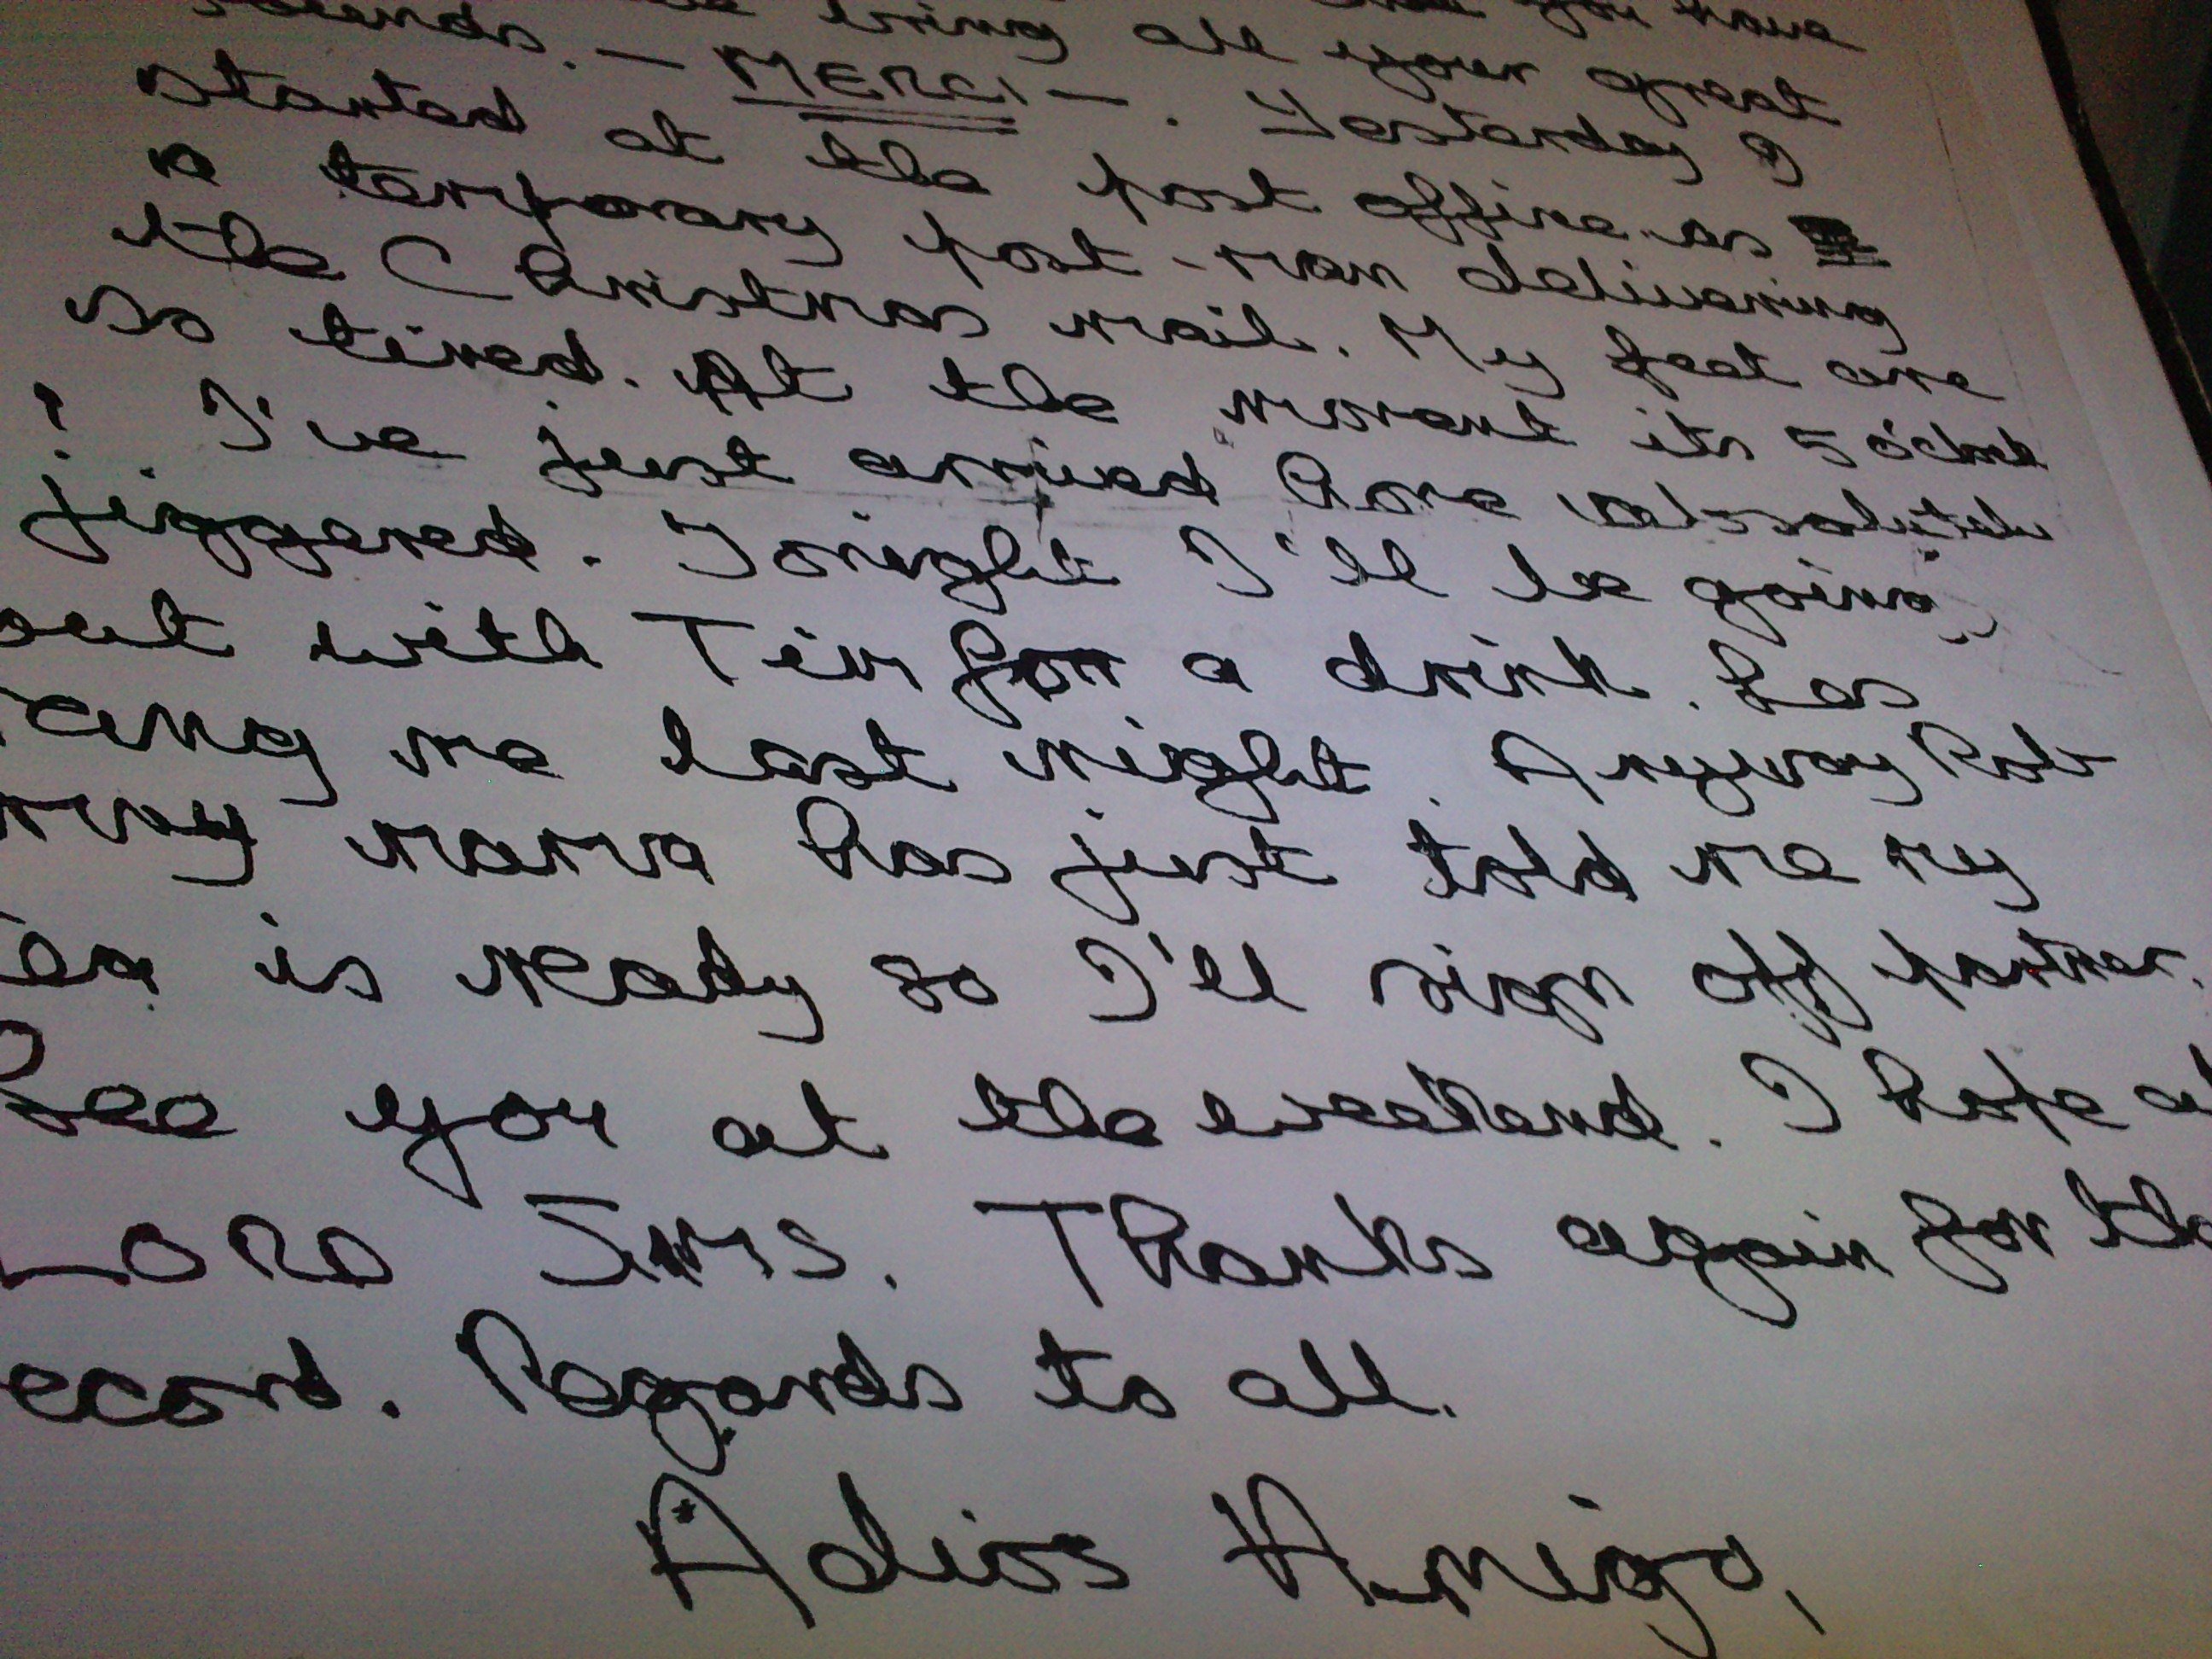 you have
sounds. bring all your great
— MERCI —. Yesterday I
started at the post office as
a temporary post-man delivering
the Christmas mail. My feet are
so tired. At the moment its 5 o'clock
! . I've just arrived home absolutely
jiggered. Tonight I'll be going
out with Tim for a drink. Les
rang me last night. Anyway Rob
my mama has just told me my
tea is ready so I'll sign off partner.
See you at the weekend. I hope
LORD SIMS. Thanks again for the
record. Regards to all.
Adios Amigo,